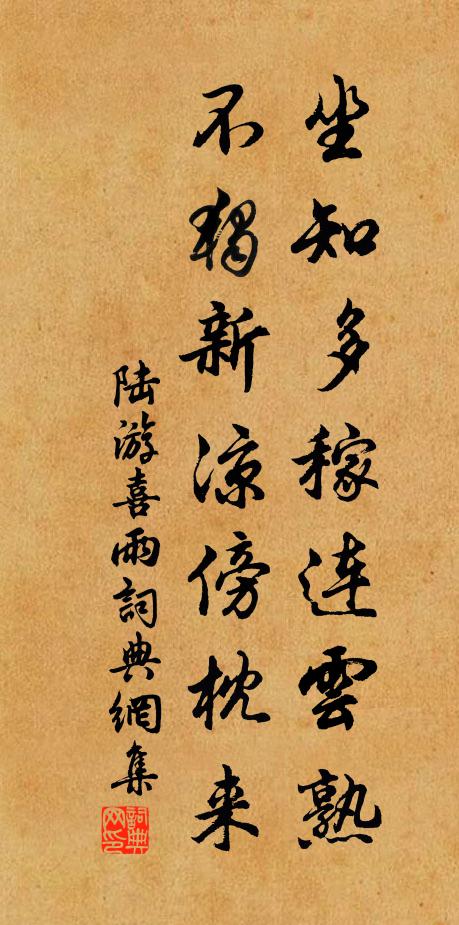 坐知多稼连雲熟
不獨新凉傍枕来
陆游喜雨詞典網集
詞典网印